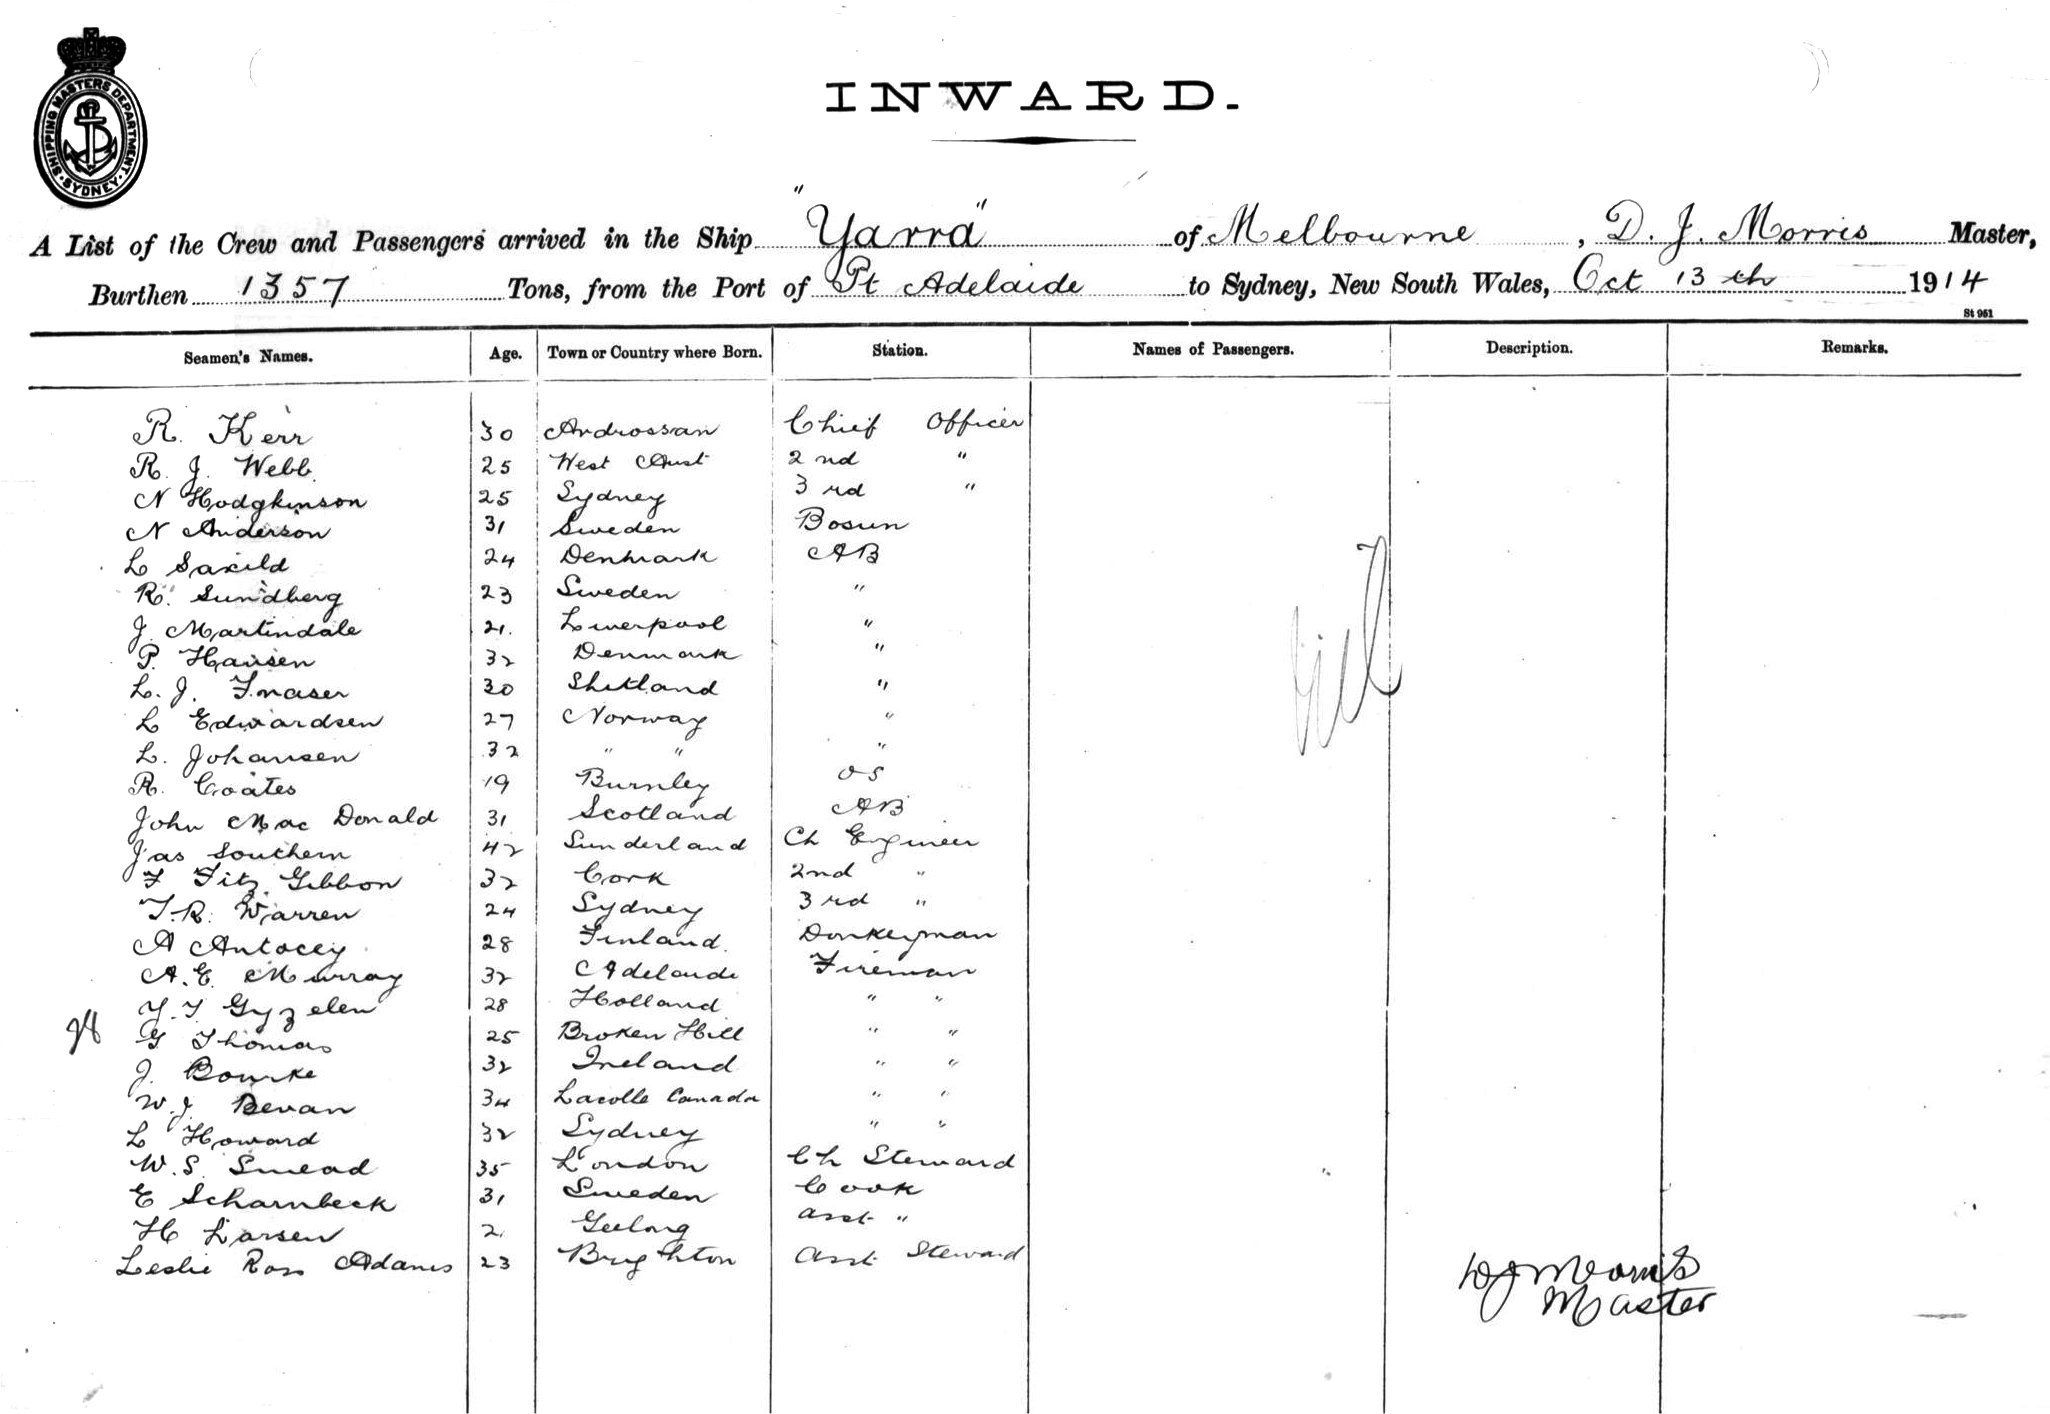 SHIPPING MASTERS DEPARTMENT. SYDNEY
INWARD.
A List of the Crew and Passengers arrived in the Ship "Yarra" of Melbourne, D. J. Morris Master,
Burthen 1357 Tons, from the Port of Pt Adelaide to Sydney, New South Wales, Oct 13th 1914
St 961
Seamen's Names. Age. Town or Country where Born. Station. Names of Passengers. Description. Remarks.
R. Kerr 30 Androssan Chief Officer
R. J. Webb. 25 West Aust 2nd "
N Hodgkinson 25 Sydney 3rd "
N Anderson 31 Sweden Bosun
L Saxild 24 Denmark AB
R. Sundberg 23 Sweden "
J. Martindale 21. Liverpool "
P. Hansen 32 Denmark "
L. J. Fraser 30 Shetland "
L Edwardsen 27 Norway "
L. Johansen 32 " " "
R. Coates 19 Burnley OS
John Mac Donald 31 Scotland AB
Jas Southern 42 Sunderland Ch Engineer
F Fitz Gibbon 32 Cork 2nd "
T. R. Warren 24 Sydney 3rd "
A Antocey 28 Finland. Donkeyman
A. E. Murray 32 Adelaide Fireman
Gyzelen 28 Holland " "
28
G Thomas 25 Broken Hill " "
J. Bourke 32 Ireland " "
W. J. Bevan 34 Lacolle Canada " "
L Howard 32 Sydney " "
W. S. Smead 35 London Ch Steward
E Scharnbeck 31 Sweden Cook
H Larsen 2 Geelong Asst "
Leslie Ross Adams 23 Brighton Asst Steward
D J Morris
Master